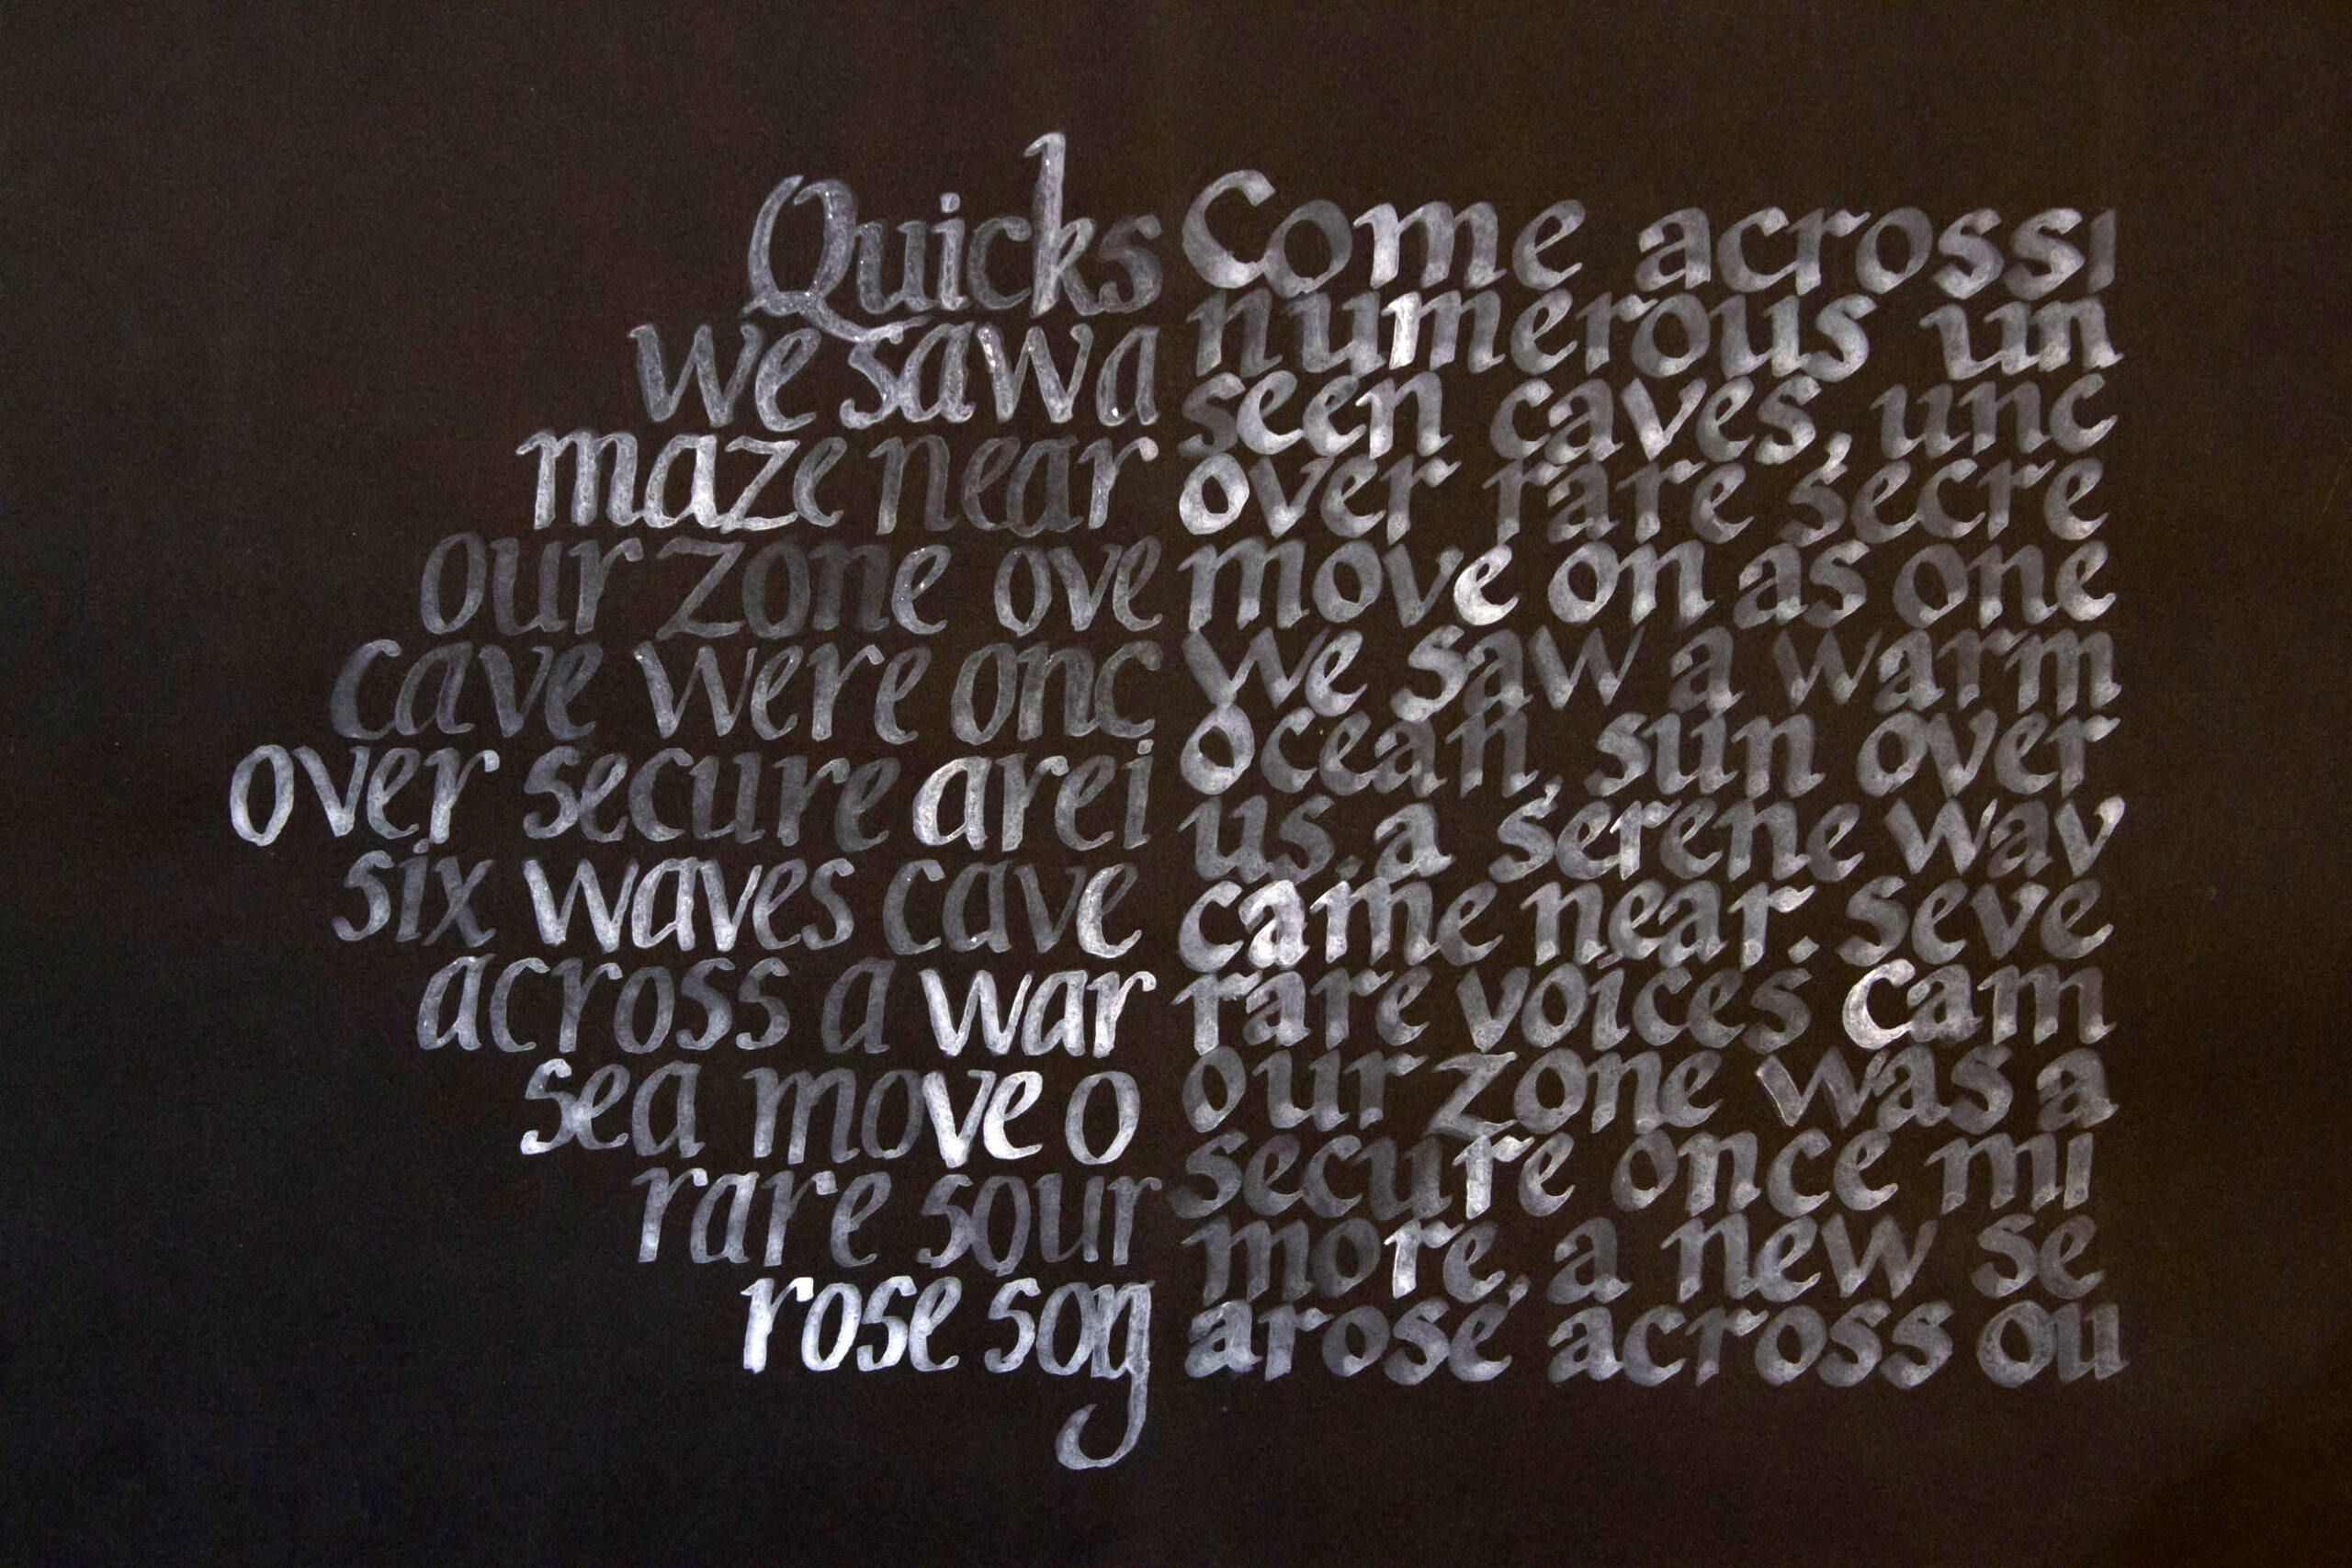 Quicks
we saw a
maze near
our zone ove
cave were onc
over secure arei
six waves cave
across a war
sea move o
rare sour
rose song
Come acrossı
numerous un
seen caves, unc
over rare secre
move on as one
we saw a warm
ocean, sun over
us, a serene wav
came near. seve
rare voices cam
our zone was a
secure once mi
more, a new se
arose across ou